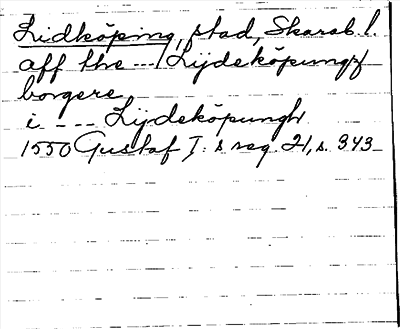 Lidköping, stad, Skarab. l.
aff the --- Lijdeköpungx
borgere
i --- Lijdeköpungh
1550 Gustaf I:s reg. 21, s. 343